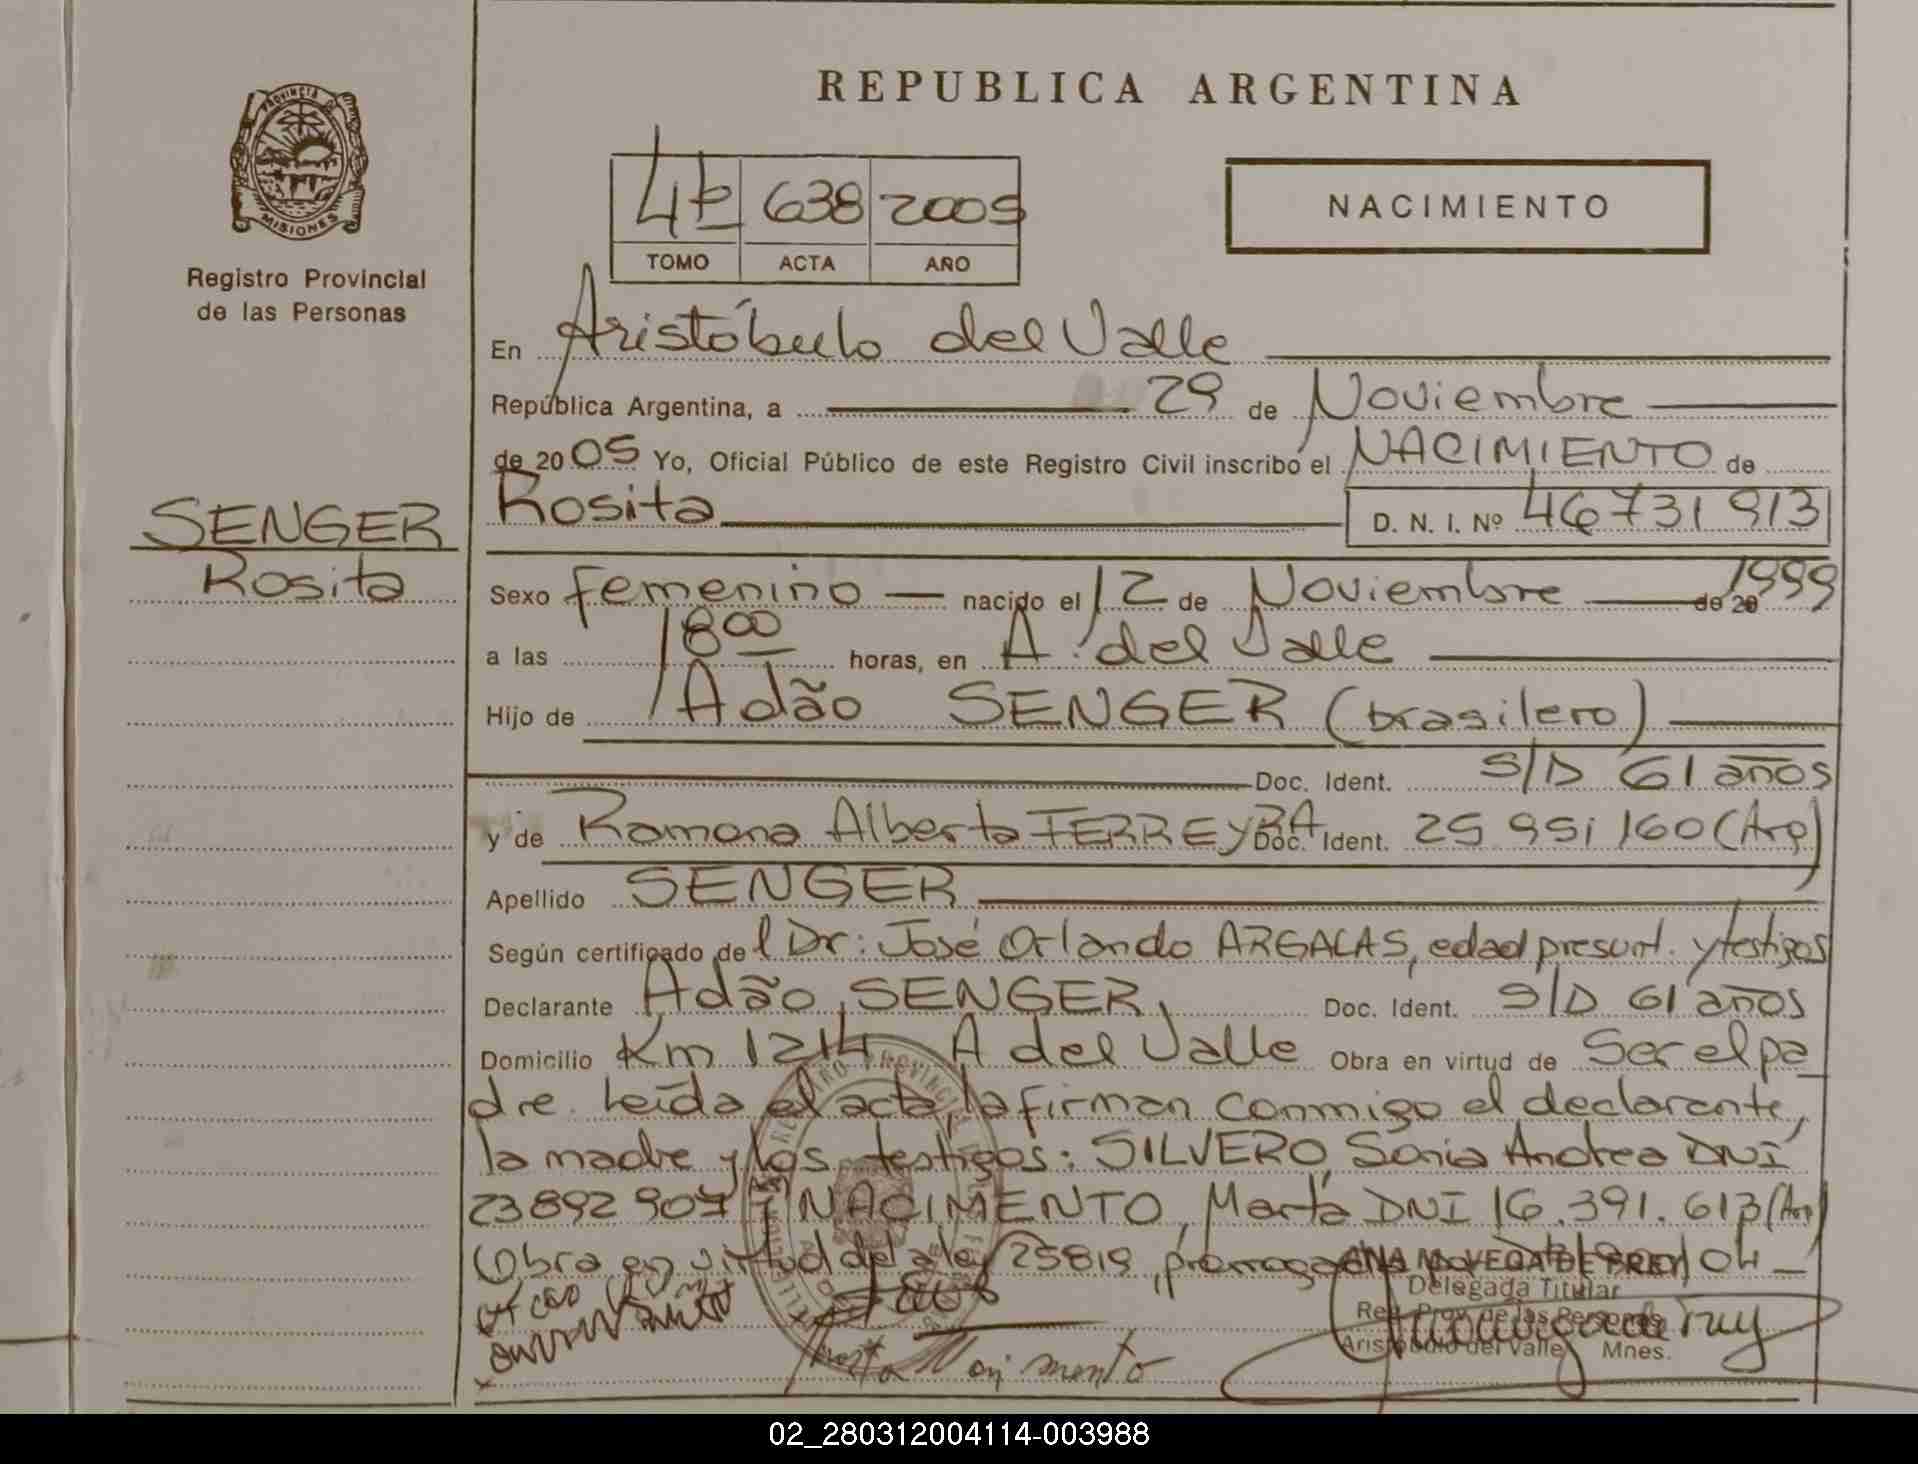 REPUBLICA ARGENTINA
PROVINCIA DE
MISIONES
Registro Provincial
de las Personas
4º 638 2005
TOMO ACTA AÑO
NACIMIENTO
En Aristóbulo del Valle
República Argentina, a 29 de Noviembre
de 2005 Yo, Oficial Público de este Registro Civil inscribo el NACIMIENTO de
Rosita D. N. I. Nº 46731913
SENGER
Rosita
Sexo femenino nacido el 12 de Noviembre de 20 1999
a las 18 00 horas, en A. del Valle
Hijo de Adão SENGER (brasilero)
Doc. Ident. S/D 61 años
y de Ramona Alberta FERREYRA Doc. Ident. 25 951 160 (Arg)
Apellido SENGER
Según certificado del Dr: José Orlando ARGALAS, edad presunt. y testigos
Declarante Adão SENGER, Doc. Ident. S/D 61 años
Domicilio Km 1214 A del Valle Obra en virtud de Ser el pa
dre. Leída el acta, la firman conmigo el declarante,
la madre y los testigos: SILVERO, Sonia Andrea DNI
23892907 NACIMENTO, Marta DNI 16.391.613 (Arg)
Obra en virtud de la ley 25819, 04
ANA M. VEGA DE
Delegada Titular
Reg. Prov. de las Personas
Aristóbulo del Valle Mnes.
Marta Nacimento
02_280312004114-003988